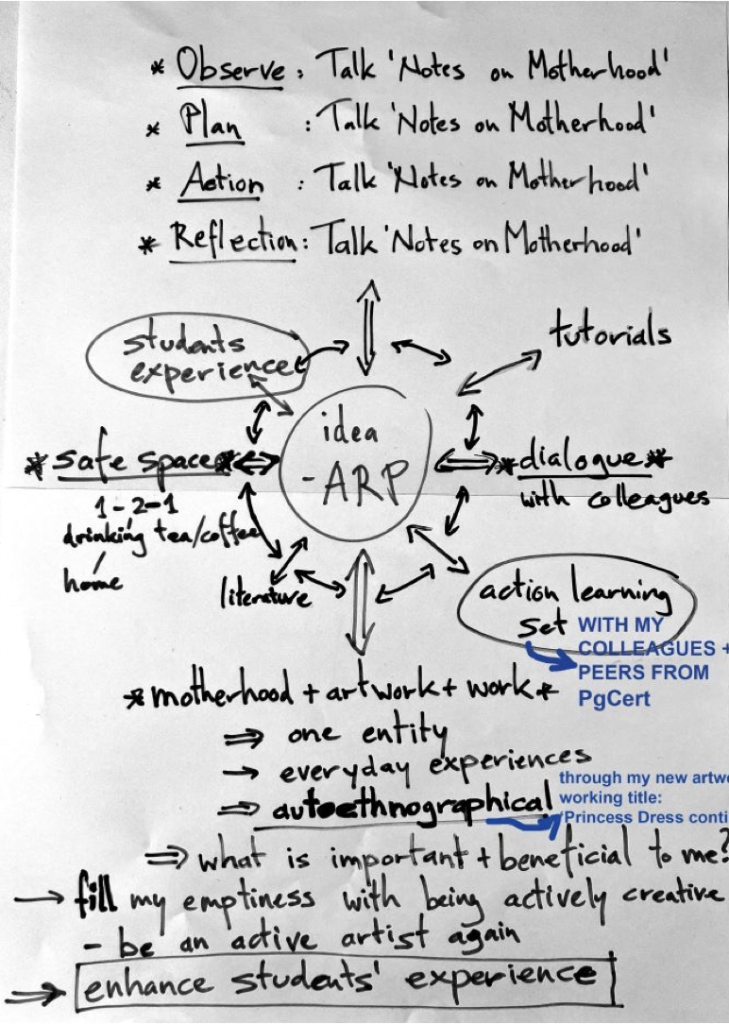 * Observe : Talk 'Notes on Motherhood'
* Plan : Talk 'Notes on Motherhood'
* Action : Talk 'Notes on Motherhood'
* Reflection : Talk 'Notes on Motherhood'
students
experience
tutorials
idea
-ARP
*safe space*
1-2-1
drinking tea/coffee
/
home
*dialogue*
with colleagues
literature
action learning
set
WITH MY
COLLEAGUES +
PEERS FROM
PgCert
*motherhood + artwork + work*
⇒ one entity
→ everyday experiences
⇒ autoethnographical
through my new artw
working title:
'Princess Dress conti
⇒ what is important + beneficial to me?
→ fill my emptiness with being actively creative
- be an active artist again
⇒ enhance students' experience